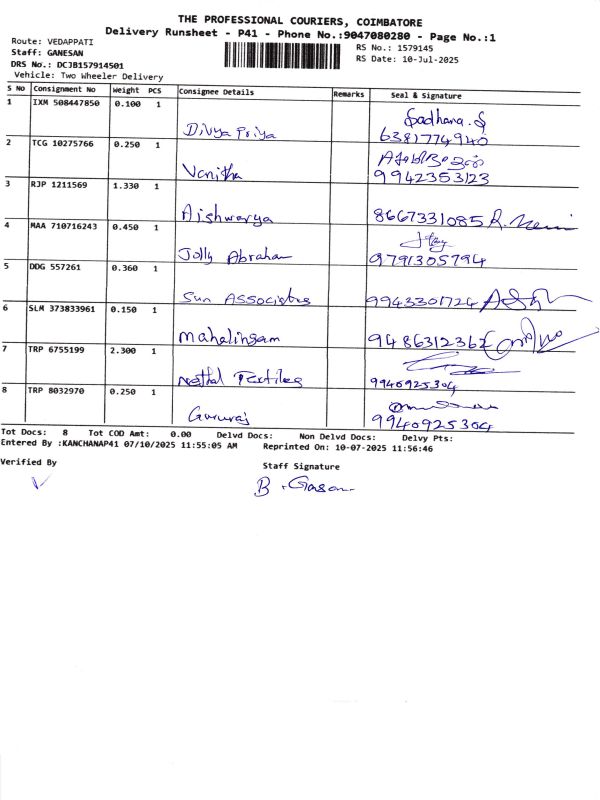 THE PROFESSIONAL COURIERS, COIMBATORE
Delivery Runsheet - P41 - Phone No.:9047080280 - Page No.:1
Route: VEDAPPATI
Staff: GANESAN
DRS No.: DCJB157914501
Vehicle: Two Wheeler Delivery
RS No.: 1579145
RS Date: 10-Jul-2025
S No Consignment No Weight PCS Consignee Details Remarks Seal & Signature
1 IXM 508447850 0.100 1 Divya Priya Sadhana.S 6381774940
2 TCG 10275766 0.250 1 Vanitha 9942353123
3 RJP 1211569 1.330 1 Aishwarya 8667331085
4 MAA 710716243 0.450 1 Jolly Abraham 9791305794
5 DDG 557261 0.360 1 Sun Associates 9943301724
6 SLM 373833961 0.150 1 Mahalingam 9486312362
7 TRP 6755199 2.300 1 Textiles 9940925304
8 TRP 8032970 0.250 1 Gururaj 9940925304
Tot Docs: 8 Tot COD Amt: 0.00 Delvd Docs: Non Delvd Docs: Delvy Pts:
Entered By :KANCHANAP41 07/10/2025 11:55:05 AM Reprinted On: 10-07-2025 11:56:46
Verified By
Staff Signature